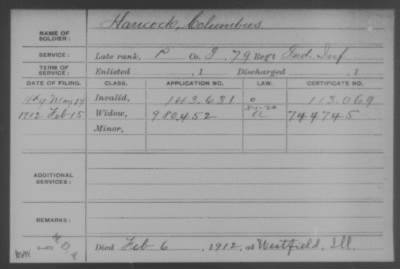 Hancock, Columbus
NAME OF SOLDIER:
SERVICE: Late rank, P Co. I, 79 Reg't Ind. Inf
TERM OF SERVICE: Enlisted , 1 Discharged , 1
DATE OF FILING. CLASS. APPLICATION NO. LAW. CERTIFICATE NO.
Invalid, 113.069
1912 Feb 15 Widow, 980,452 744745
Minor,
ADDITIONAL SERVICES:
REMARKS:
Died Feb 6 , 1912, at Westfield, Ill.